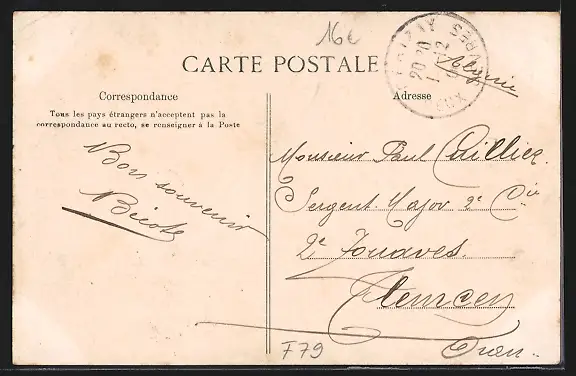 16e
CARTE POSTALE
Algérie
Correspondance
Adresse
Tous les pays étrangers n'acceptent pas la
correspondance au recto, se renseigner à la Poste
Bon souvenir
Monsieur Paul Cuillier
Sergent Major 2e Cie
2e Zouaves
Tlemcen
Oran
F79